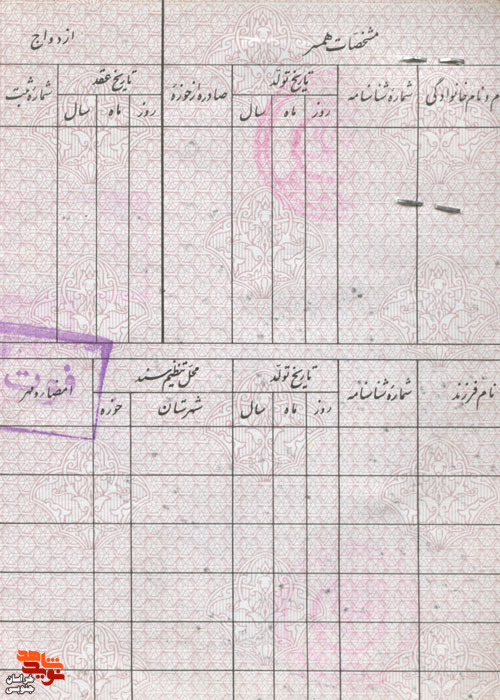 مشخصات همسر ازدواج
م و نام خانوادگی شمارهٔ شناسنامه تاریخ تولّد صادره از حوزهٔ تاریخ عقد شمارهٔ ثبت
روز ماه سال روز ماه سال
نام فرزند شمارهٔ شناسنامه تاریخ تولّد محلّ تنظیم سند امضاء و مهر
روز ماه سال شهرستان حوزه
فوت
نوید شاهد
خراسان
جنوبی